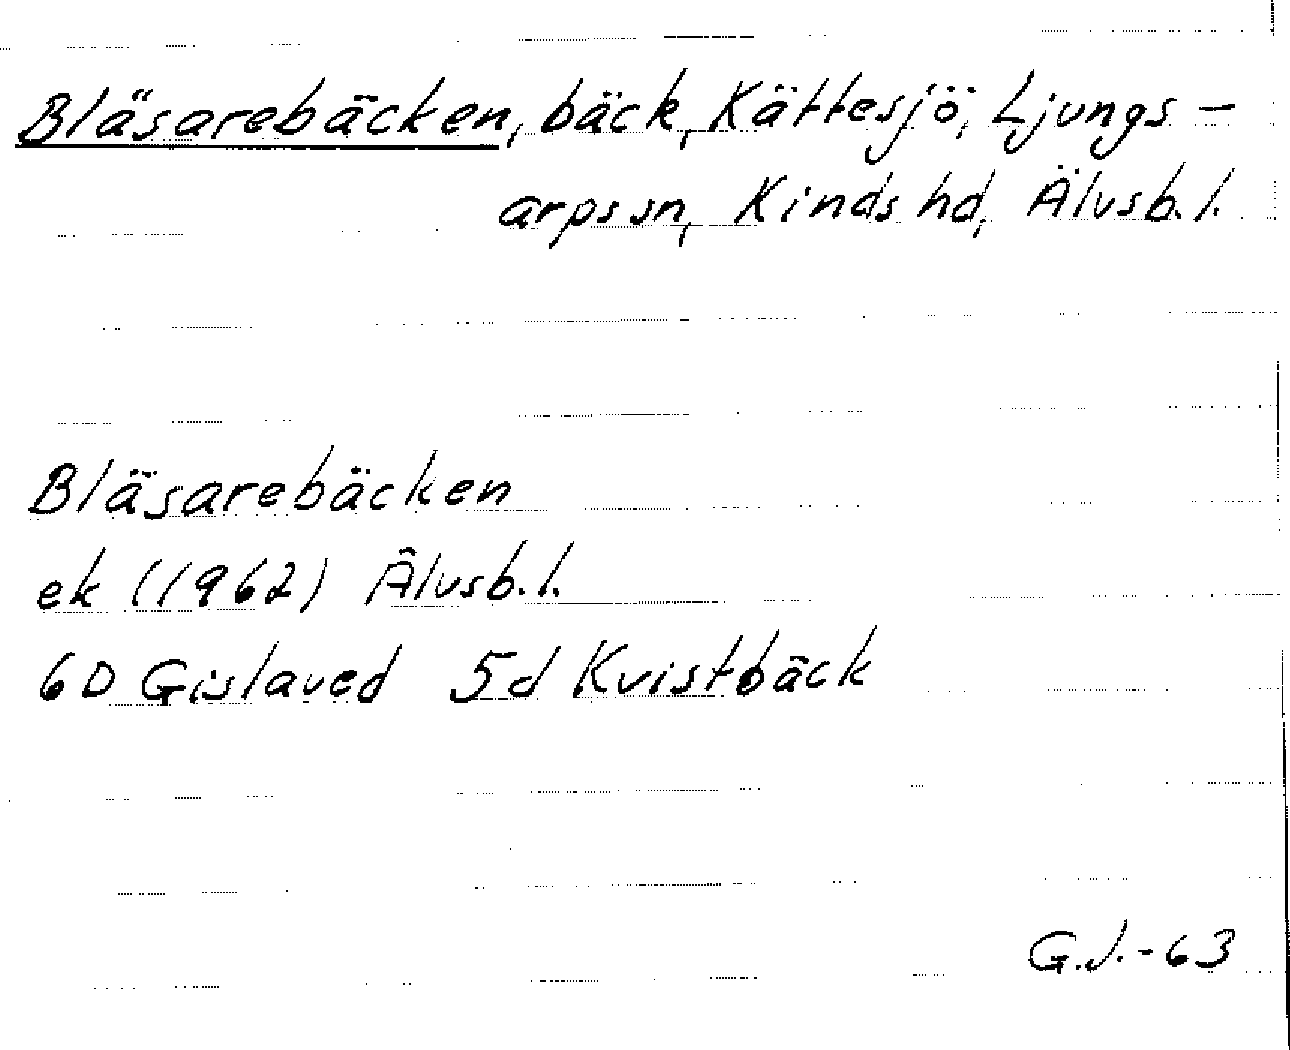 Bläsarebäcken, bäck, Kättesjö, Ljungs-
arps sn, Kinds hd, Älvsb. l.
Bläsarebäcken
ek (1962) Älvsb. l.
6D Gislaved 5d Kvistbäck
G.J.-63